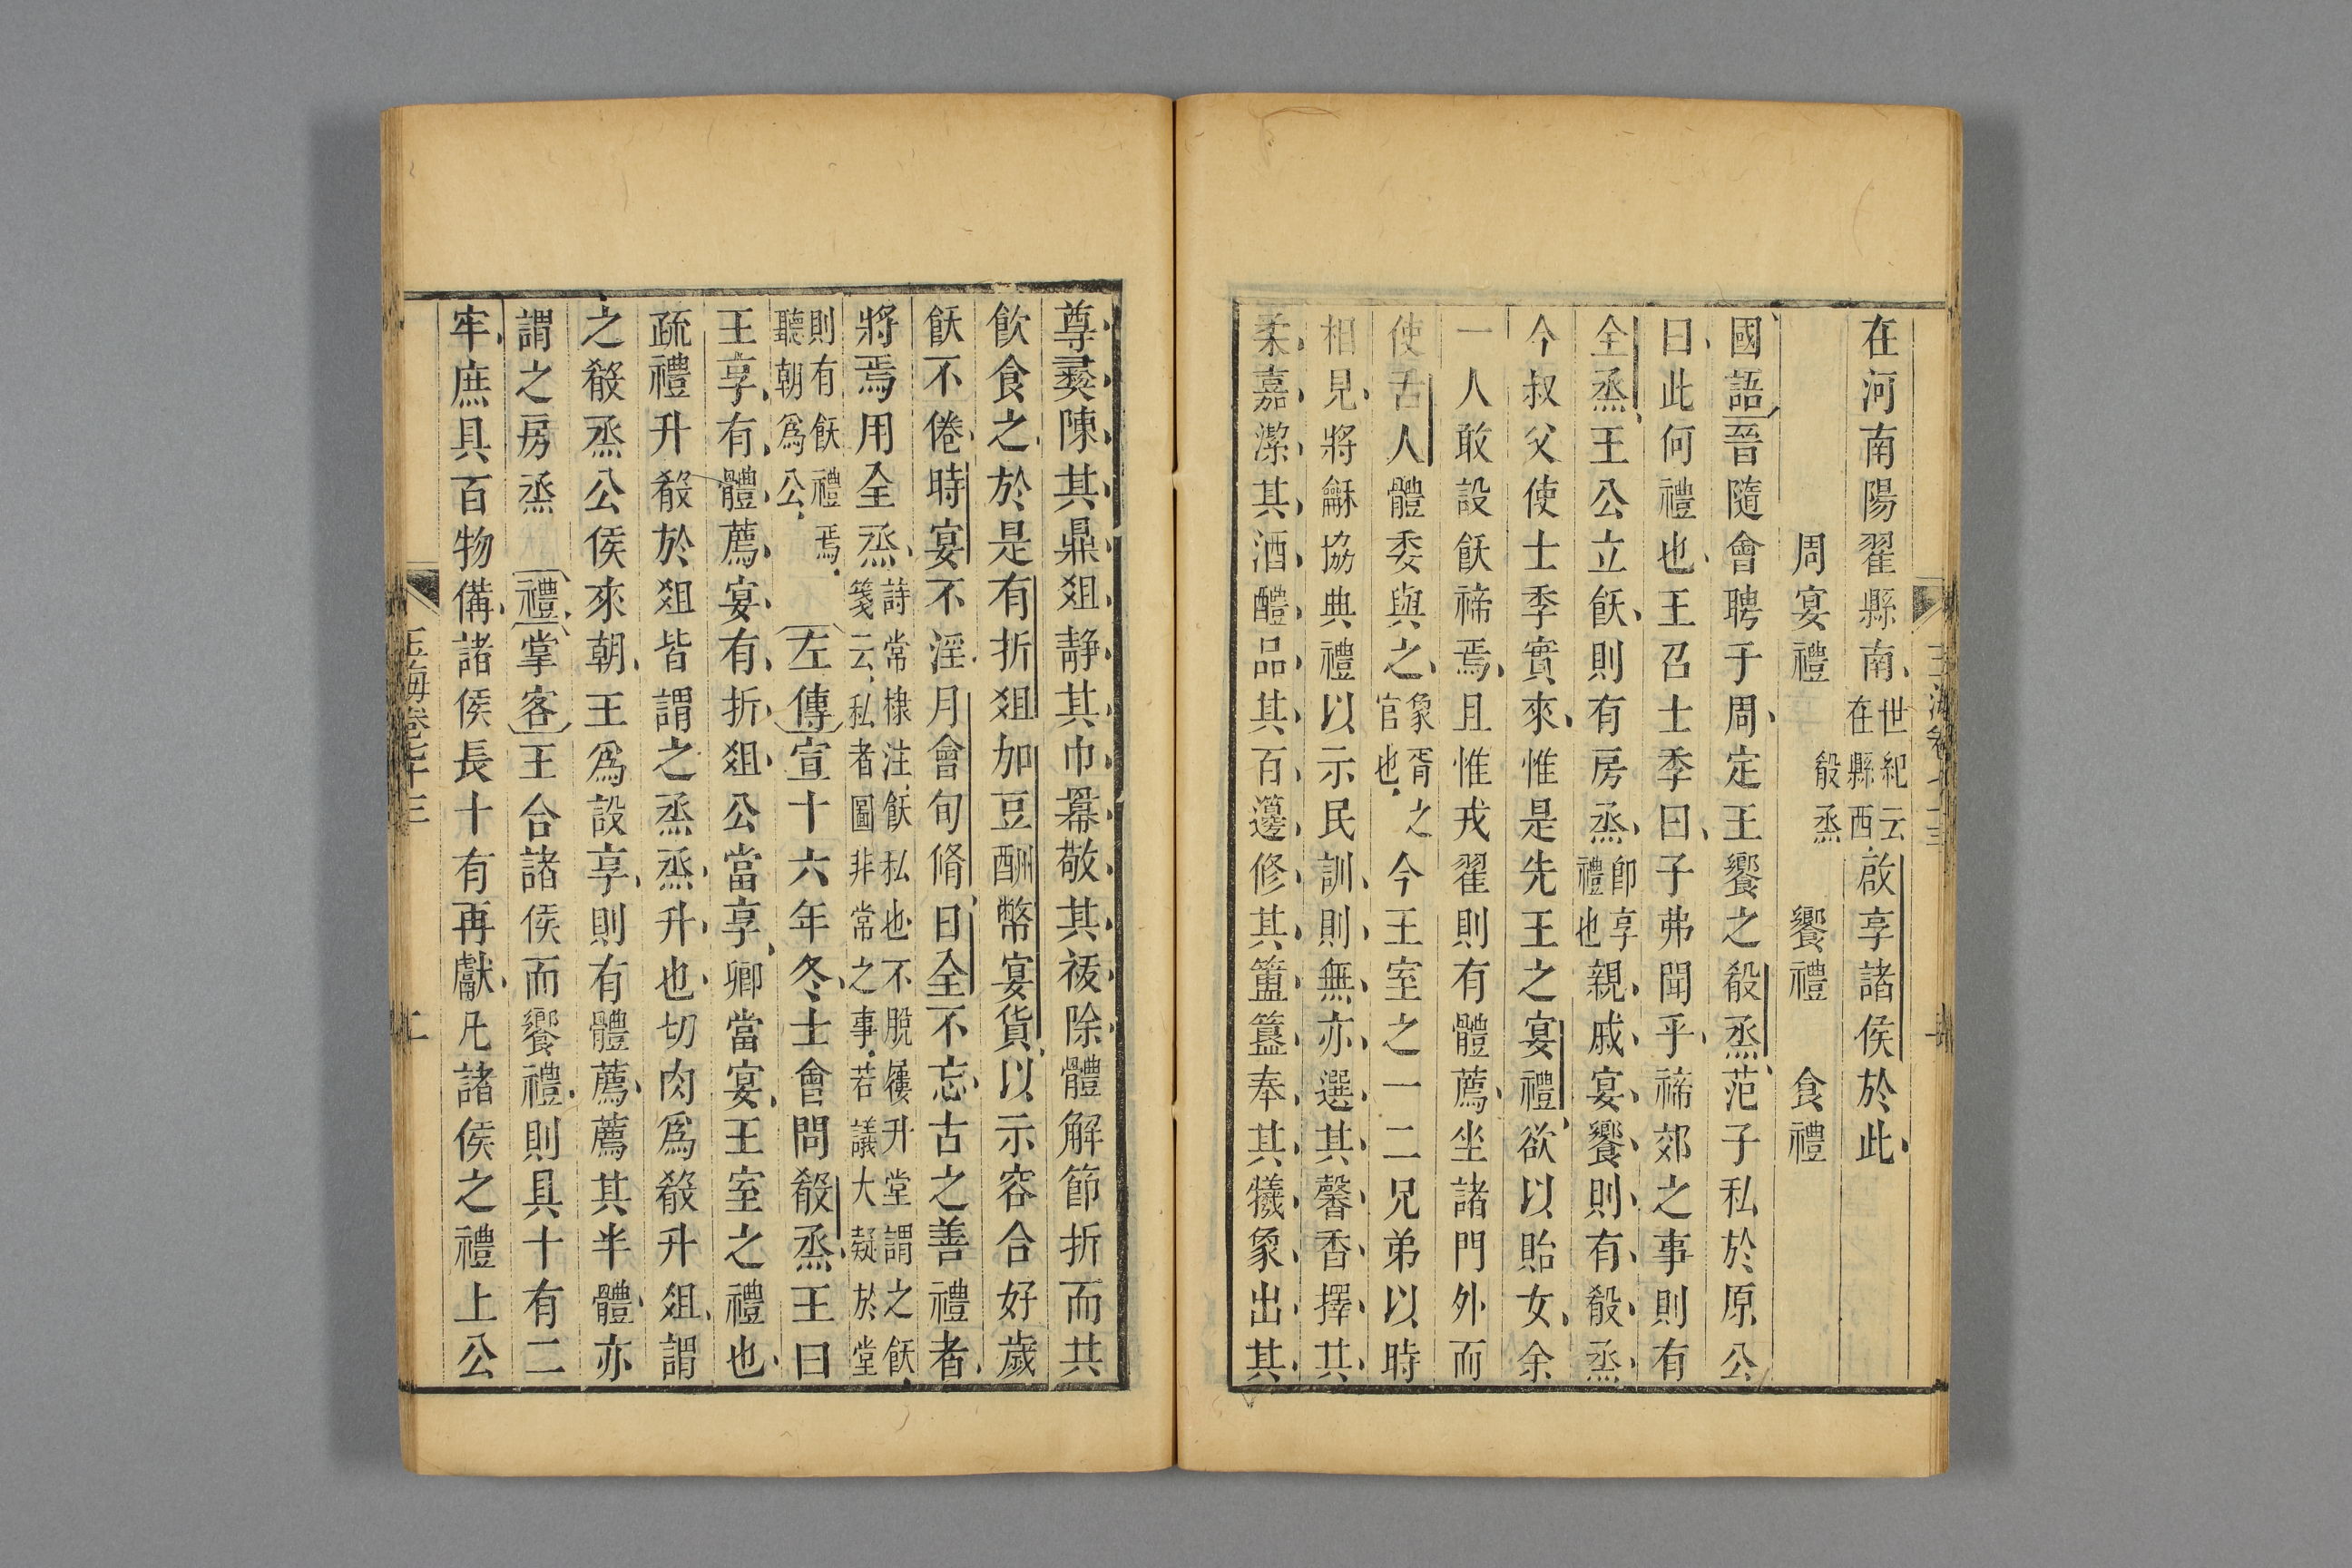 在河南陽翟縣南世紀云在縣西啟享諸侯於此
周宴禮 殽烝 饗禮 食禮
國語晉隨會聘于周定王饗之殽烝范子私於原公
曰此何禮也王召士季曰子弗聞乎禘郊之事則有
全烝王公立飫則有房烝卽享禮也親戚宴饗則有殽烝
今叔父使士季實來惟是先王之宴禮欲以貽女余
一人敢設飫禘焉且惟戎翟則有體薦坐諸門外而
使舌人體委與之象胥之官也今王室之一二兄弟以時
相見將龢協典禮以示民訓則無亦選其馨香擇其
柔嘉潔其酒醴品其百籩修其簠簋奉其犧象出其
尊彞陳其鼎俎靜其巾冪敬其祓除體解節折而共
飲食之於是有折俎加豆酬幣宴貨以示容合好歲
飫不倦時宴不淫月會旬脩日全不忘古之善禮者
將焉用全烝詩常棣注飫私也不脫屨升堂謂之飫箋云私者圖非常之事若議大疑於堂
則有飫禮焉聽朝爲公左傳宣十六年冬士會問殽烝王曰
王享有體薦宴有折俎公當享卿當宴王室之禮也
疏禮升殽於俎皆謂之烝烝升也切肉爲殽升俎謂
之殽烝公侯來朝王爲設享則有體薦薦其半體亦
謂之房烝禮掌客王合諸侯而饗禮則具十有二
牢庶具百物備諸侯長十有再獻凡諸侯之禮上公
玉海卷七十三
二